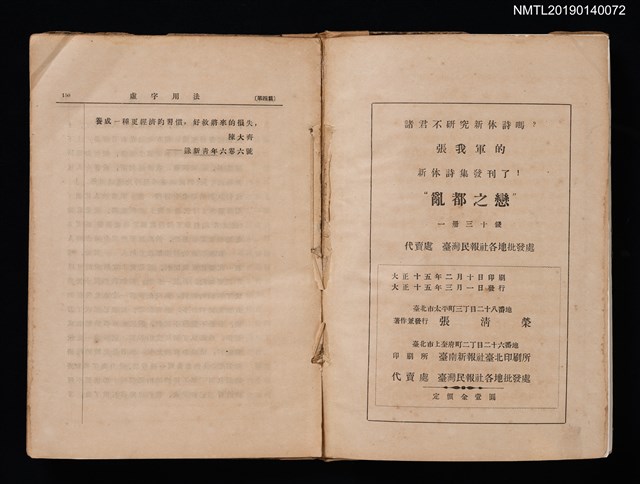 NMTL20190140072
虛字用法
(第四篇)
養成一種更經濟的習慣，好救濟來的損失，
陳大齊
——議新青年六卷六號
諸君不研究新体詩嗎？
張我軍的
新体詩集發刊了！
“亂都之戀”
一冊三十錢
代賣處　臺灣民報社各地批發處
大正十五年二月十日印刷
大正十五年三月一日發行
臺北市太平町三丁目二十八番地
著作兼發行　張清榮
臺北市上奎府町二丁目二十六番地
印刷所　臺南新報社臺北印刷所
代賣處　臺灣民報社各地批發處
定價金壹圓